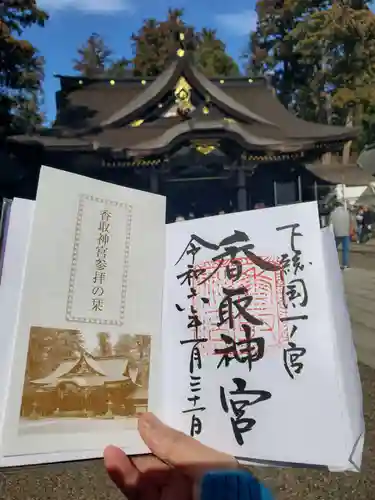 香取神宮参拝の栞
下総国一ノ宮
香取神宮
令和六年一月三十一日